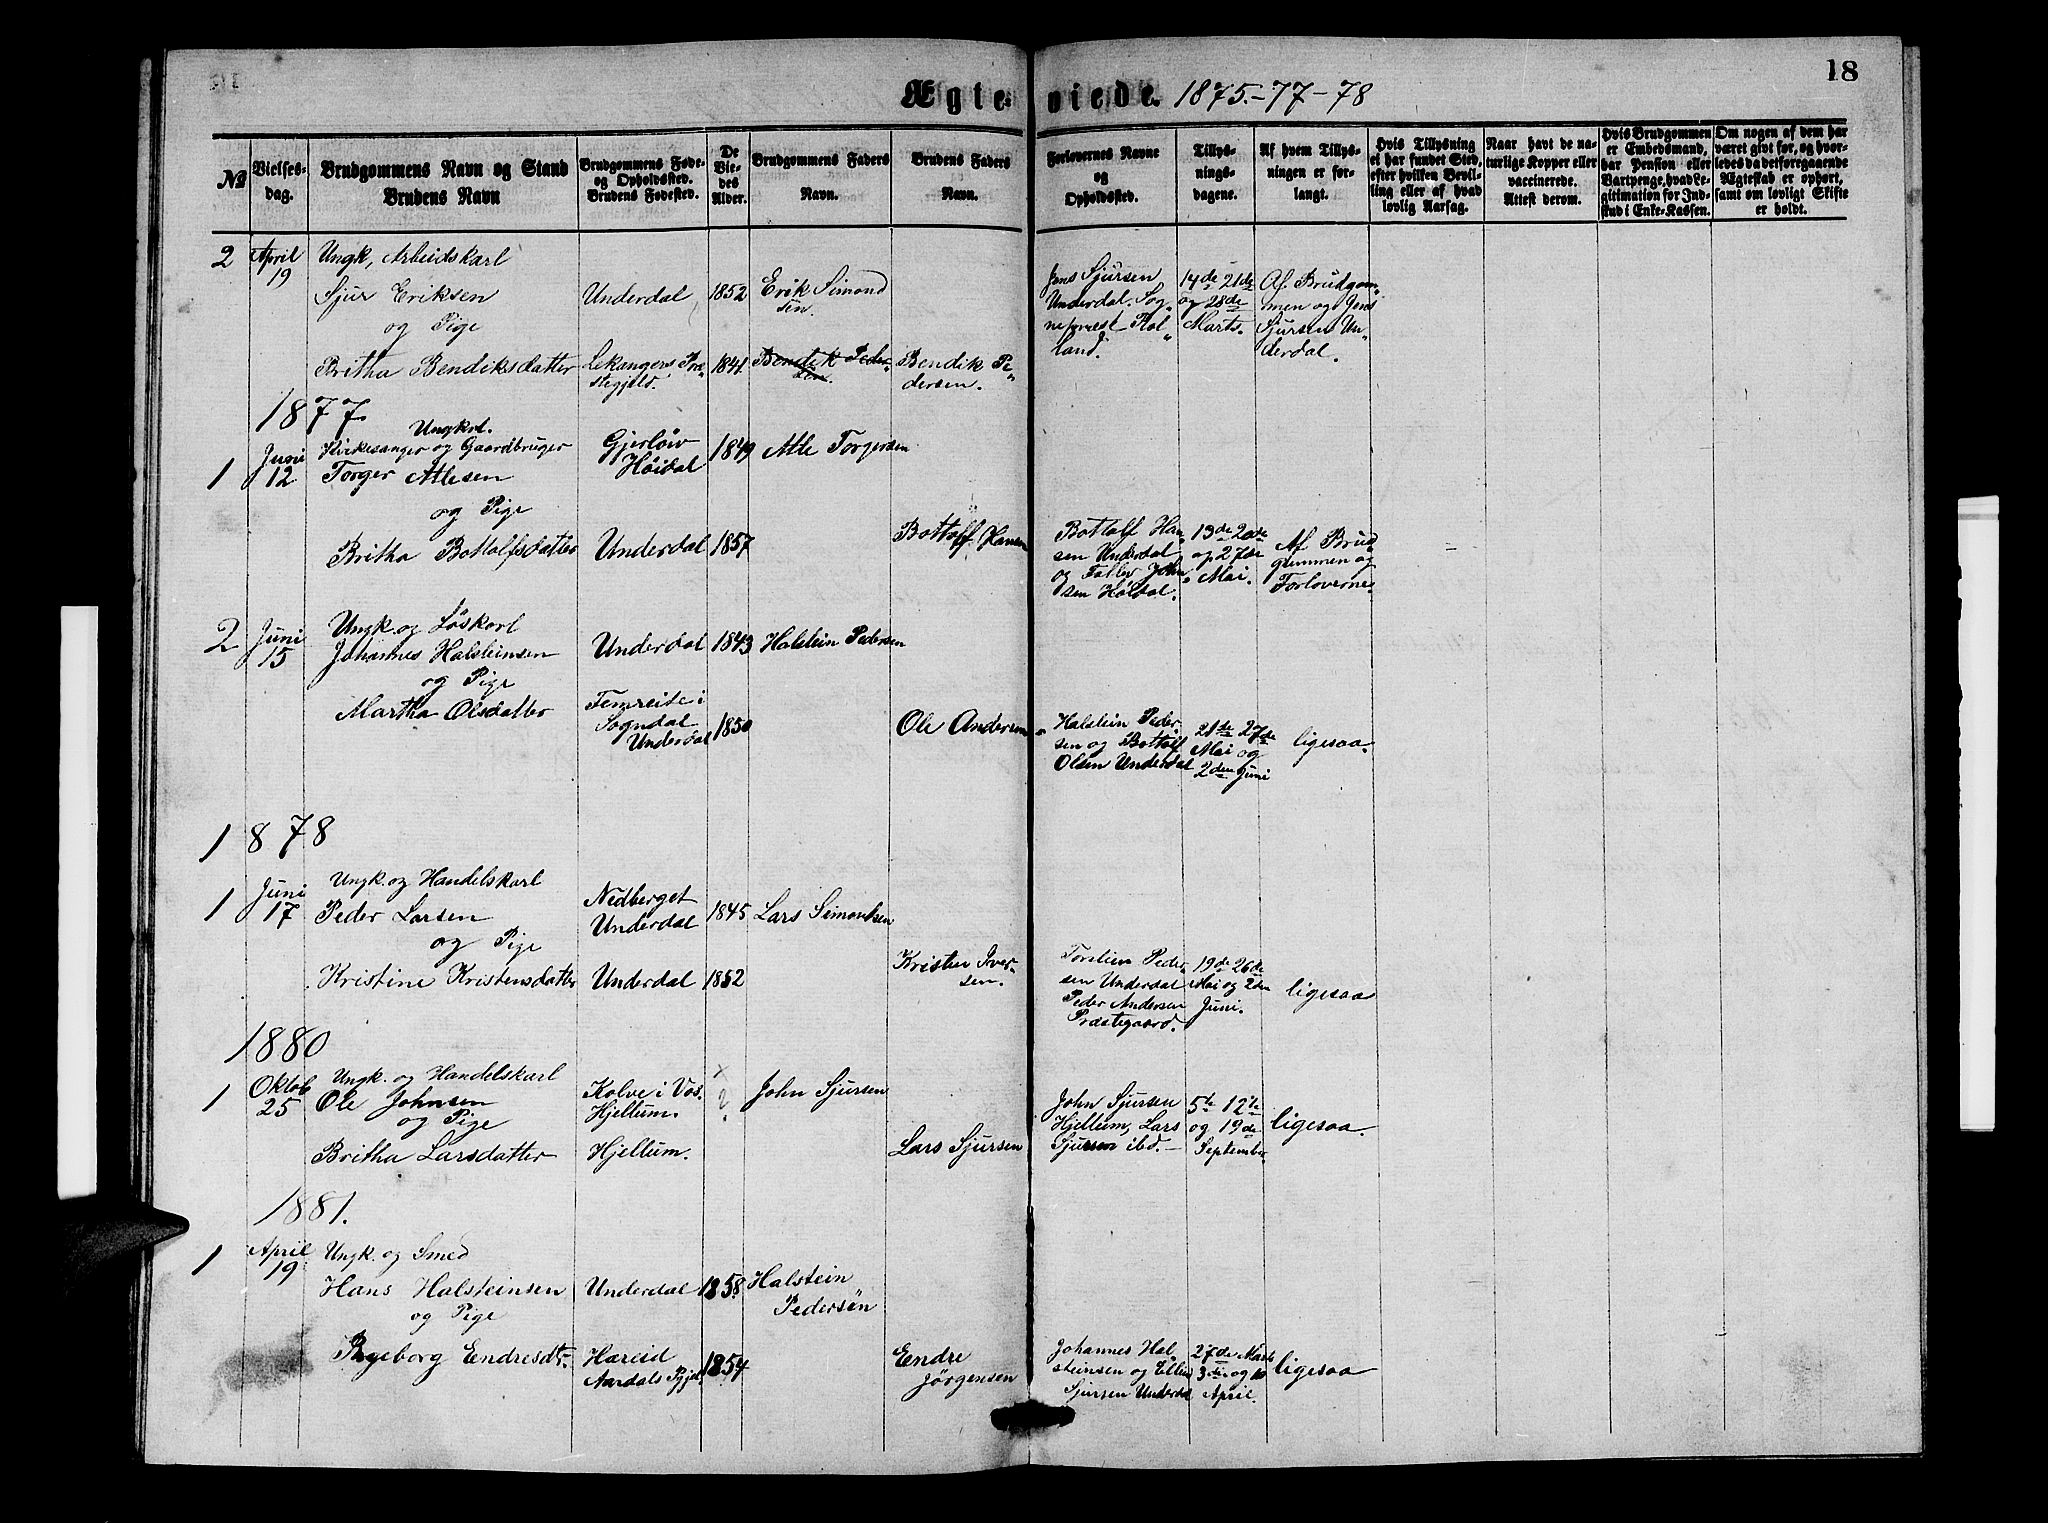 18
Ægteviede. 1875.-77-78
№
Vielses-
dag.
Brudgommens Navn og Stand
Brudens Navn
Brudgommens Føde-
og Opholdssted.
Brudens Fødested.
De
Vie-
des
Alder.
Brudgommens Faders
Navn.
Brudens Faders
Navn.
Forlovernes Navne
og
Opholdssted.
Tillys-
nings-
dagene.
Af hvem Tillys-
ningen er for-
langt.
Hvis Tillysning
ei har fundet Sted,
efter hvilken Bevil-
ling eller af hvad
lovlig Aarsag.
Naar havt de na-
turlige Kopper eller
vaccinerede.
Attest derom.
Hvis Brudgommen
er Embedsmand,
har Pension eller
Vartpenge, hvad Le-
gitimation for Ind-
skud i Enke-Kassen.
Om nogen af dem har
været gift før, og hvor-
ledes da det foregaaende
Ægteskab er ophørt,
samt om lovligt Skifte
er holdt.
2
April
19
Ungk, Arbeidskarl
Sjur Eriksen
og Pige
Britha Bendiksdatter
Underdal
Lekangers Præ-
stegjeld.
1852
1841
Erik Simond
sen.
Bendik Peder-
sen.
Bendik Pe-
dersen.
Jens Sjursen
Underdal. Sog-
nefornest
land.
14de 21de
og 28de
Marts.
Af Brudgom-
men og Jens
Sjursen Un-
derdal.
1877
1
Juni
12
Ungkrl.
Kirkesanger og Gaardbruger
Torger Atlesen
og Pige
Britha Bottolfsdatter
Gjerløiv
Höidal
Underdal
1849
1857
Atle Torgersen
Bottolf Hansen
Bottolf Han-
sen Underdal
og John
sen Höidal.
13de 20de
og 27de
Mai.
Af Brud-
gummen og
Forloverne.
2
Juni
15
Ungk. og Løskarl
Johannes Halsteinsen
og Pige
Martha Olsdatter
Underdal
Fimreite i
Sogndal
Underdal
1843
1850
Halstein Pedersen
Ole Andersen
Halstein Peder-
sen og Bottolf
Olsen Underdal
21de 27de
Mai og
2den Juni
ligesaa.
1878
1
Juni
17
Ungk. og Handelskarl
Peder Larsen
og Pige
Kristine Kristensdatter
Nedberget
Underdal
Underdal
1845
1852
Lars Simonsen
Kristen Iver-
sen.
Torstein Peder-
sen Underdal
Peder Andersen
Præstegaard.
19de 26de
Mai og 2den
Juni.
ligesaa
1880
1
Oktob
25
Ungk. og Handelskarl
Ole Johnsen
og Pige
Britha Larsdatter
Kolve i Vos.
Hjellum.
Hjellum.
×
?
John Sjursen
Lars Sjursen
John Sjursen
Hjellum, Lars
Sjursen ibd.
5te 12te
og 19de
September.
ligesaa.
1881.
1
April
19
Ungk. og Smed
Hans Halsteinsen
og Pige
Ingeborg Endresdtr.
Underdal
Hareid
Aardals Pgjeld
1858
1854
Halstein
Pedersön
Endre
Jörgensen
Johannes Hal-
steinsen og
Sjursen Underdal
27de Marts
3die og 10
April.
ligesaa